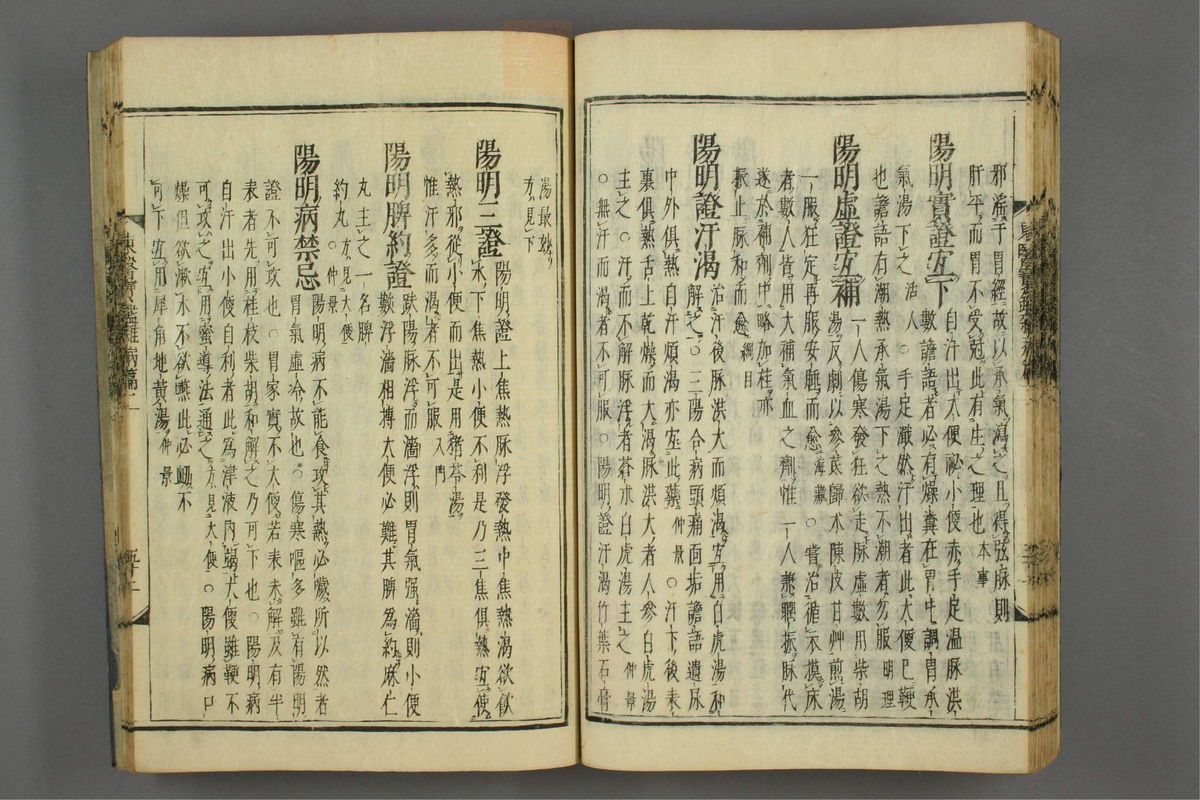 邪淫于胃經故以承氣瀉之且得弦脉則
肝平而胃不受尅此有生之理也 本事
陽明實證宜下 自汗出大便祕小便赤手足温脉洪
數譫語者必有燥糞在胃中調胃承
氣湯下之 活人 ○手足濈然汗出者此大便已鞕
也譫語有潮熱承氣湯下之熱不潮者勿服 明理
陽明虛證宜補 一人傷寒發狂欲走脉虛數用柴胡
湯反劇以參芪歸朮陳皮甘艸煎湯
一服狂定再服安睡而愈 海藏 ○嘗治循衣摸床
者數人皆用大補氣血之劑惟一人兼瞤振脉代
遂於補劑中略加桂亦
振止脉和而愈 綱目
陽明證汗渴 治汗後脉洪大而煩渴宜用白虎湯 和
解之○三陽合病頭痛面垢譫語遺尿
中外俱熱自汗煩渴亦宜此藥 仲景 ○汗下後表
裏俱熱舌上乾燥而大渴脉洪大者人參白虎湯
主之○汗而不解脉浮者蒼朮白虎湯主之 仲景
○無汗而渴者不可服○陽明證汗渴竹葉石膏
湯最妙
方見下
陽明三證 陽明證上焦熱脉浮發熱中焦熱渴欲飮
水下焦熱小便不利是乃三焦俱熱宜使
熱邪從小便而出是用猪苓湯
惟汗多而渴者不可服 入門
陽明脾約證 趺陽脉浮而濇浮則胃氣强濇則小便
數浮濇相搏大便必難其脾爲約麻仁
丸主之一名脾
約丸 方見大便 仲景
陽明病禁忌 陽明病不能食攻其熱必噦所以然者
胃氣虛冷故也○傷寒嘔多雖有陽明
證不可攻也○胃家實不大便若表未解及有半
表者先用桂枝柴胡和解之乃可下也○陽明病
自汗出小便自利者此爲津液內竭大便雖鞕不
可攻之宜用蜜導法通之 方見大便 ○陽明病口
燥但欲漱水不欲嚥此必衄不
可下宜用犀角地黃湯 仲景
東醫寶鑑雜病篇二